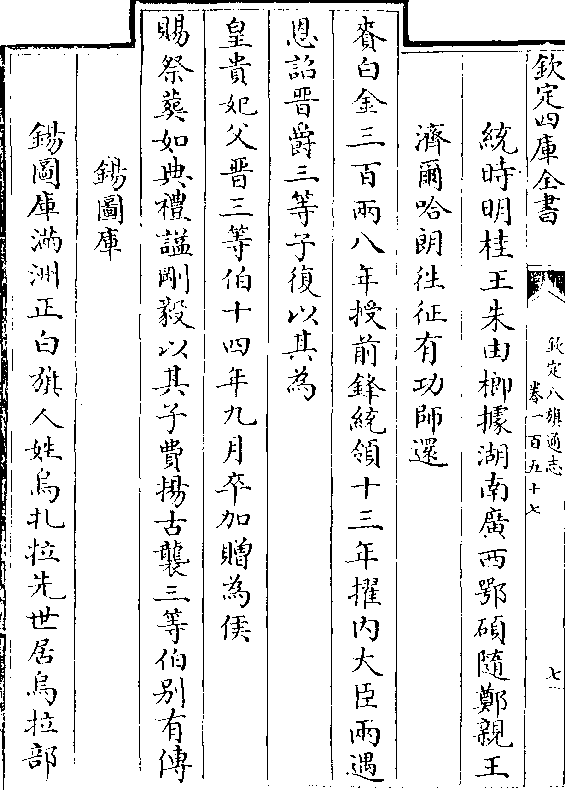 欽定四庫全書
欽定八旗通志
卷一百五十七
七
統時明桂王朱由榔據湖南廣西鄂碩隨鄭親王
濟爾哈朗徃征有功師還
賚白金三百兩八年授前鋒統領十三年擢内大臣兩遇
恩詔晋爵三等子復以其為
皇貴妃父晋三等伯十四年九月卒加贈為侯
賜祭葬如典禮謚剛毅以其子費揚古襲三等伯别有傳
錫圖庫
錫圖庫滿洲正白旗人姓烏扎拉先世居烏拉部